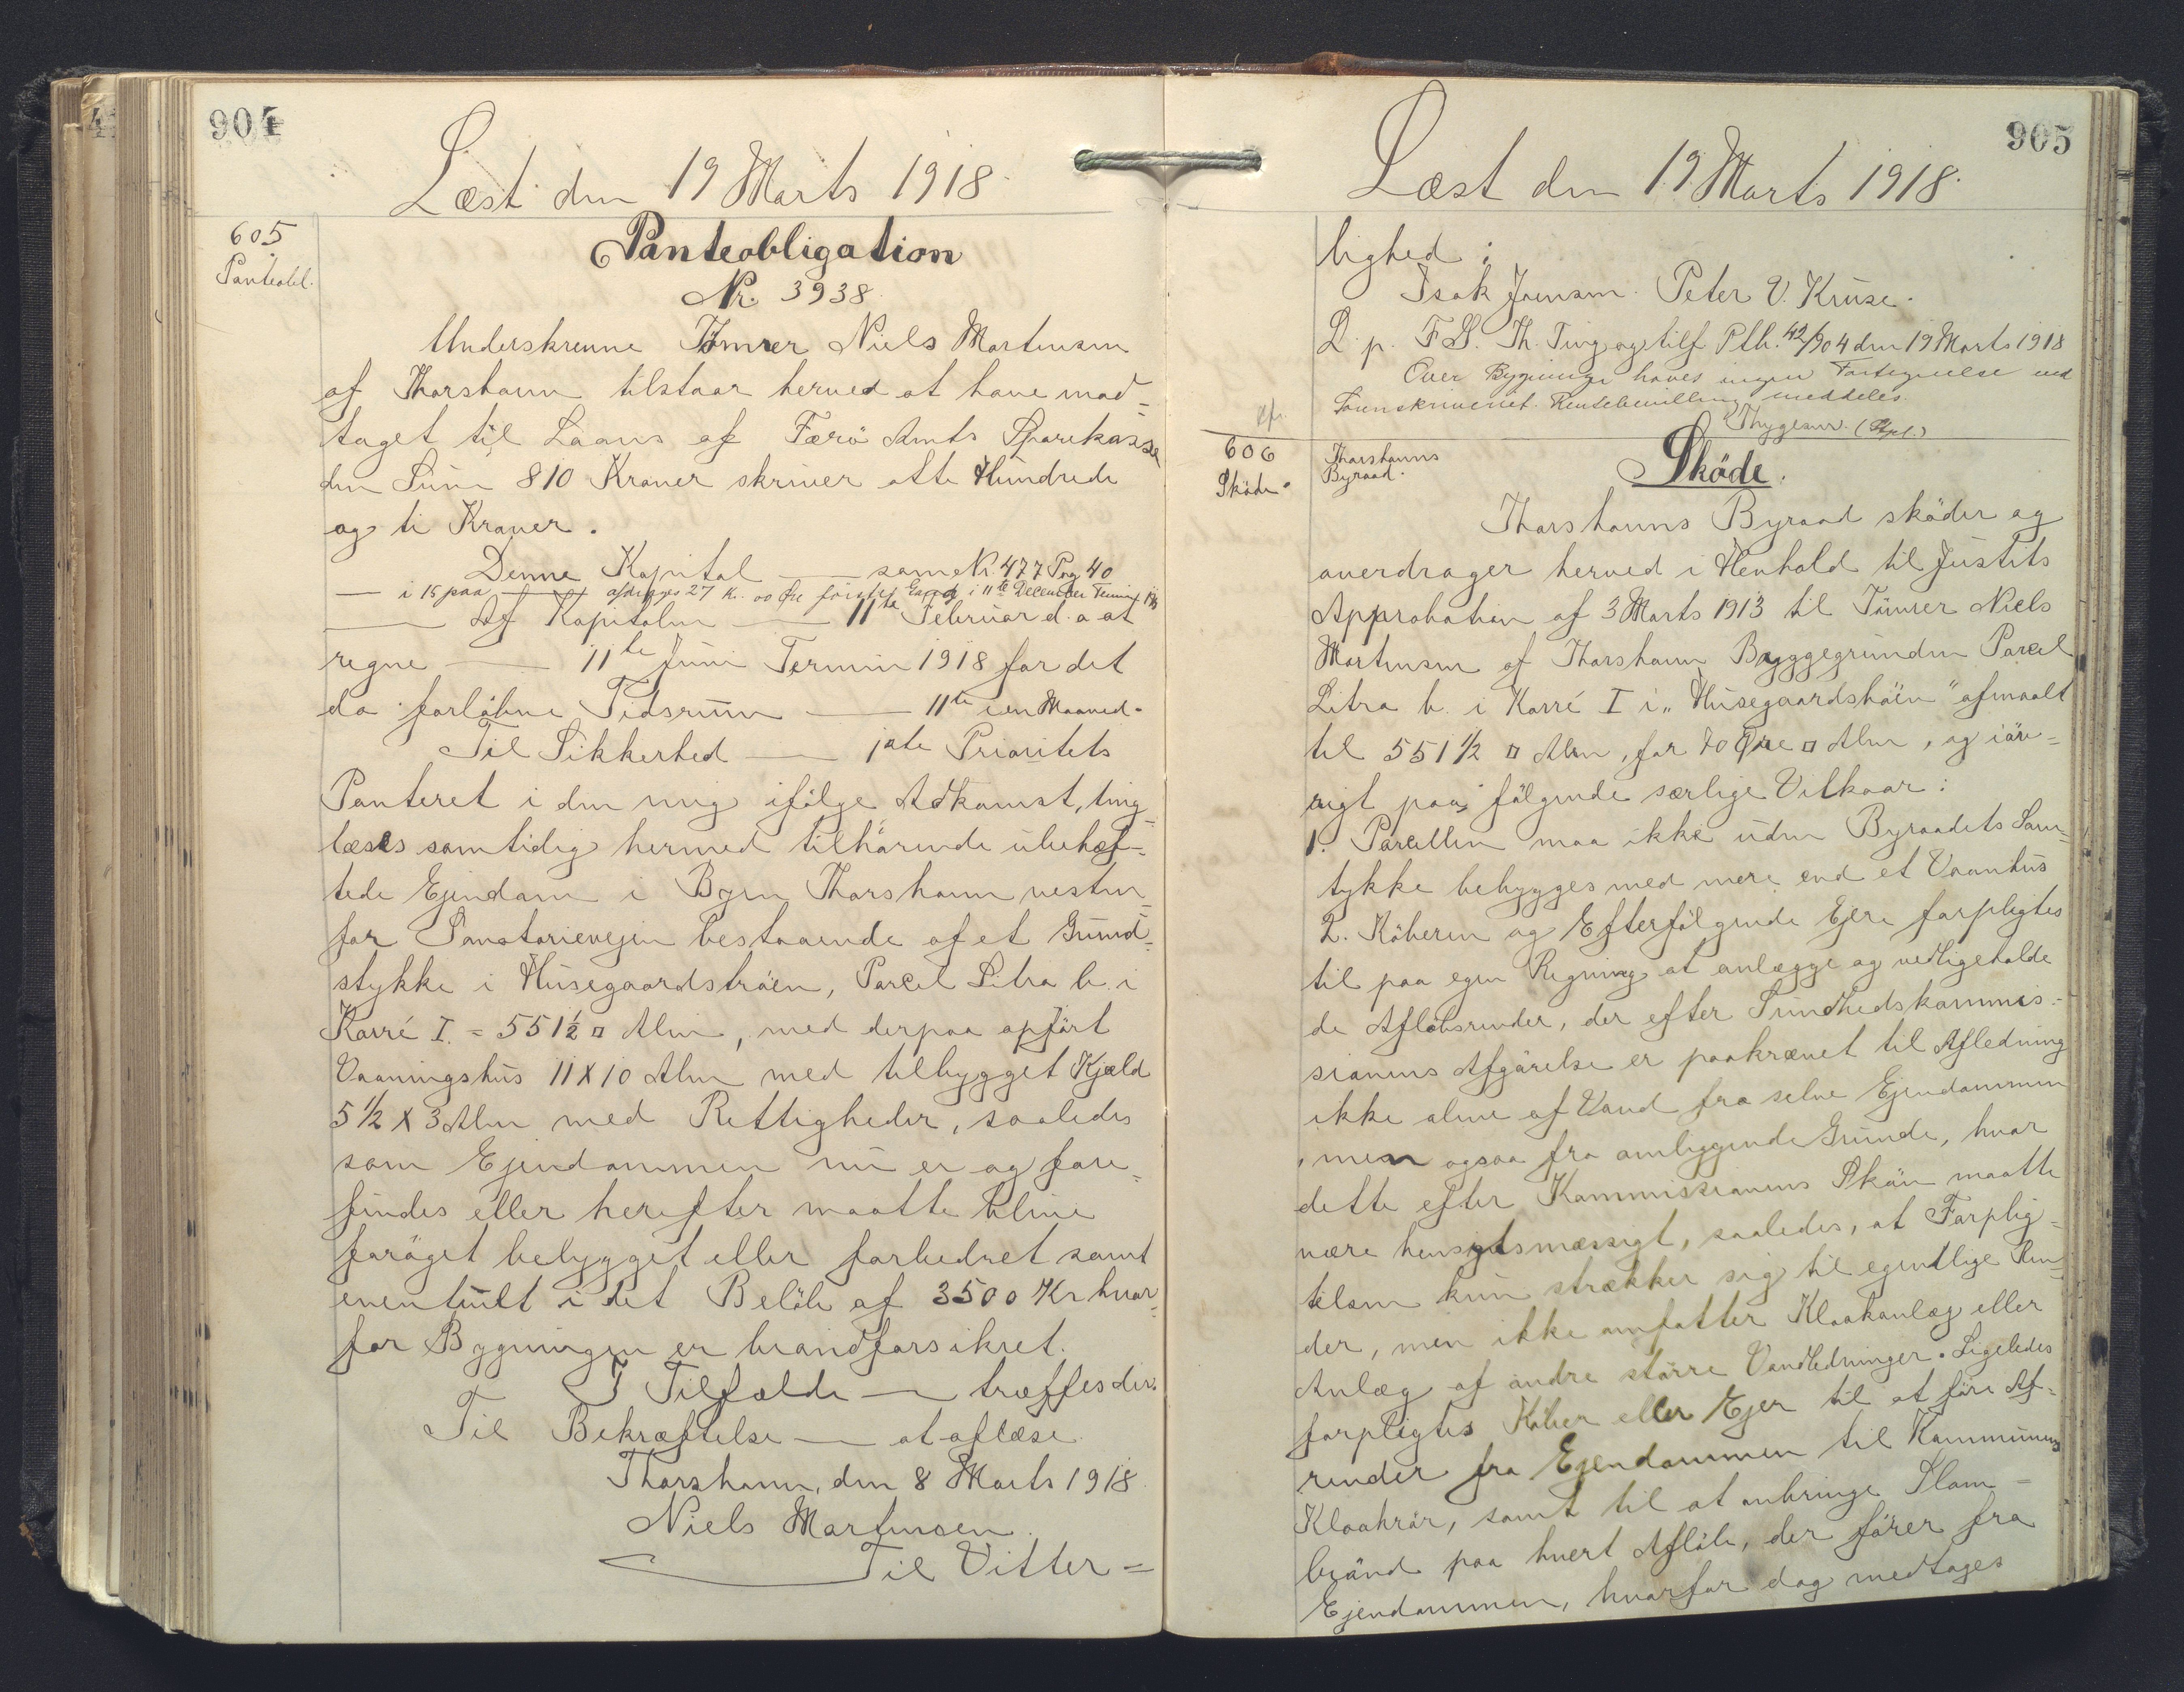 904
Læst den 19 Marts 1918.
605
Panteobl.
Panteobligation
Nr. 3938.
Underskrevne Tömrer Niels Martensen
af Thorshavn tilstaar herved at have mod=
taget til Laans af Færö Amts Sparekasse
den Sum 810 Kroner skriver otte Hundrede
og ti Kroner.
Denne Kapital — som Nr. 477 Pag 40
— i 15 paa — afdrages 27 Kr. 00 Öre første Gang i 11te December Termin
— Af Kapitalen — 11te Februar d. a at
regne — 11te Juni Termin 1918 for det
da forløbne Tidsrum — 11te i en Maaned.
Til Sikkerhed — 1ste Prioritets
Panteret i den mig ifölge Adkomst, ting=
læses samtidig hermed tilhörende ubehæf=
tede Ejendom i Byen Thorshavn vesten=
for Sanatorievejen bestaaende af et Grund=
stykke i Husegaardströen, Parcel Litra b. i
Karré I. = 551½ □ Alen, med derpaa opfört
Vaaningshus 11 x 10 Alen med tilbygget Kjæld
5½ x 3 Alen med Rettigheder, saaledes
som Ejendommen nu er og fore=
findes eller herefter maatte blive
foröget bebygget eller forbedret samt
eventuelt i det Belöb af 3500 Kr hvor=
for Bygningen er brandforsikret.
I Tilfælde — træffes der.
Til Bekræftelse — at aflæse.
Thorshavn, den 8 Marts 1918.
Niels Martensen.
Til Vitter=
905
Læst den 19 Marts 1918.
lighed:
Isak Joensen. Peter V. Kruse.
L. p. F. S. Th. Ting og tilf Ptb. 42/904 den 19 Marts 1918
Over Bygninge haves ingen Fortegnelse ved
Sorenskriveriet. Rentebevilling meddeles.
Thygesen. (Stpl.)
606
Sköde.
Thorshavns
Byraad.
Sköde.
Thorshavns Byraad sköder og
overdrager herved i Henhold til Justits
Approbation af 3 Marts 1913 til Tömrer Niels
Martensen af Thorshavn Byggegrunden Parcel
Litra b. i Karré I i „Husegaardshöen" afmaalt
til 551½ □ Alen, for 70 Öre □ Alen, og iöv=
rigt paa fölgende særlige Vilkaar:
1. Parcellen maa ikke uden Byraadets Sam=
tykke bebygges med mere end et Vaanhus
2. Köberen og Efterfölgende Ejere forpligtes
til paa egen Regning at anlægge og vedligeholde
de Aflöbsrender, der efter Sundhedskommis=
sionens Afgörelse er paakrævet til Afledning
ikke alene af Vand fra selve Ejendommen
, men ogsaa fra omliggende Grunde, hvor
dette efter Kommissionens Skön maatte
være hensigtsmæssigt, saaledes, at Forplig=
telsen kun strækker sig til egentlige Ren=
der, men ikke omfatter Kloakanlæg eller
Anlæg af andre större Vandledninger. Ligeledes
forpligtes Köber eller Ejer til at före Af=
render fra Ejendommen til Kommunens
Kloakrör, samt til at anbringe Slam=
brönd paa hvert Aflöb, der förer fra
Ejendommen, hvorfor dog medtages